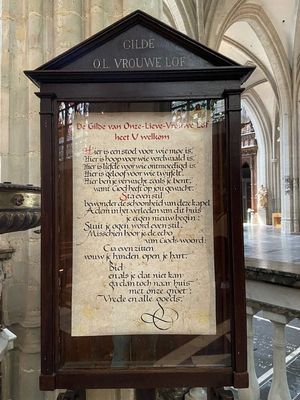 GILDE
O.L. VROUWE LOF
De Gilde van Onze-Lieve-Vrouwe Lof
heet U welkom
Hier is een stoel voor wie moe is,
Hier is hoop voor wie verdwaald is,
Hier is liefde voor wie ontmoedigd is,
Hier is geloof voor wie twijfelt.
Hier ben je verwacht zoals je bent,
want God heeft op jou gewacht.
Sta even stil
bewonder de schoonheid van deze kapel
Adem in het verleden van dit huis
je eigen nieuw begin:
Sluit je ogen, word even stil.
Misschien hoor je de echo
van Gods-woord:
Ga even zitten
vouw je handen, open je hart.
Bid
en als je dat niet kan
ga dan toch naar huis
met onze groet:
"Vrede en alle goeds"